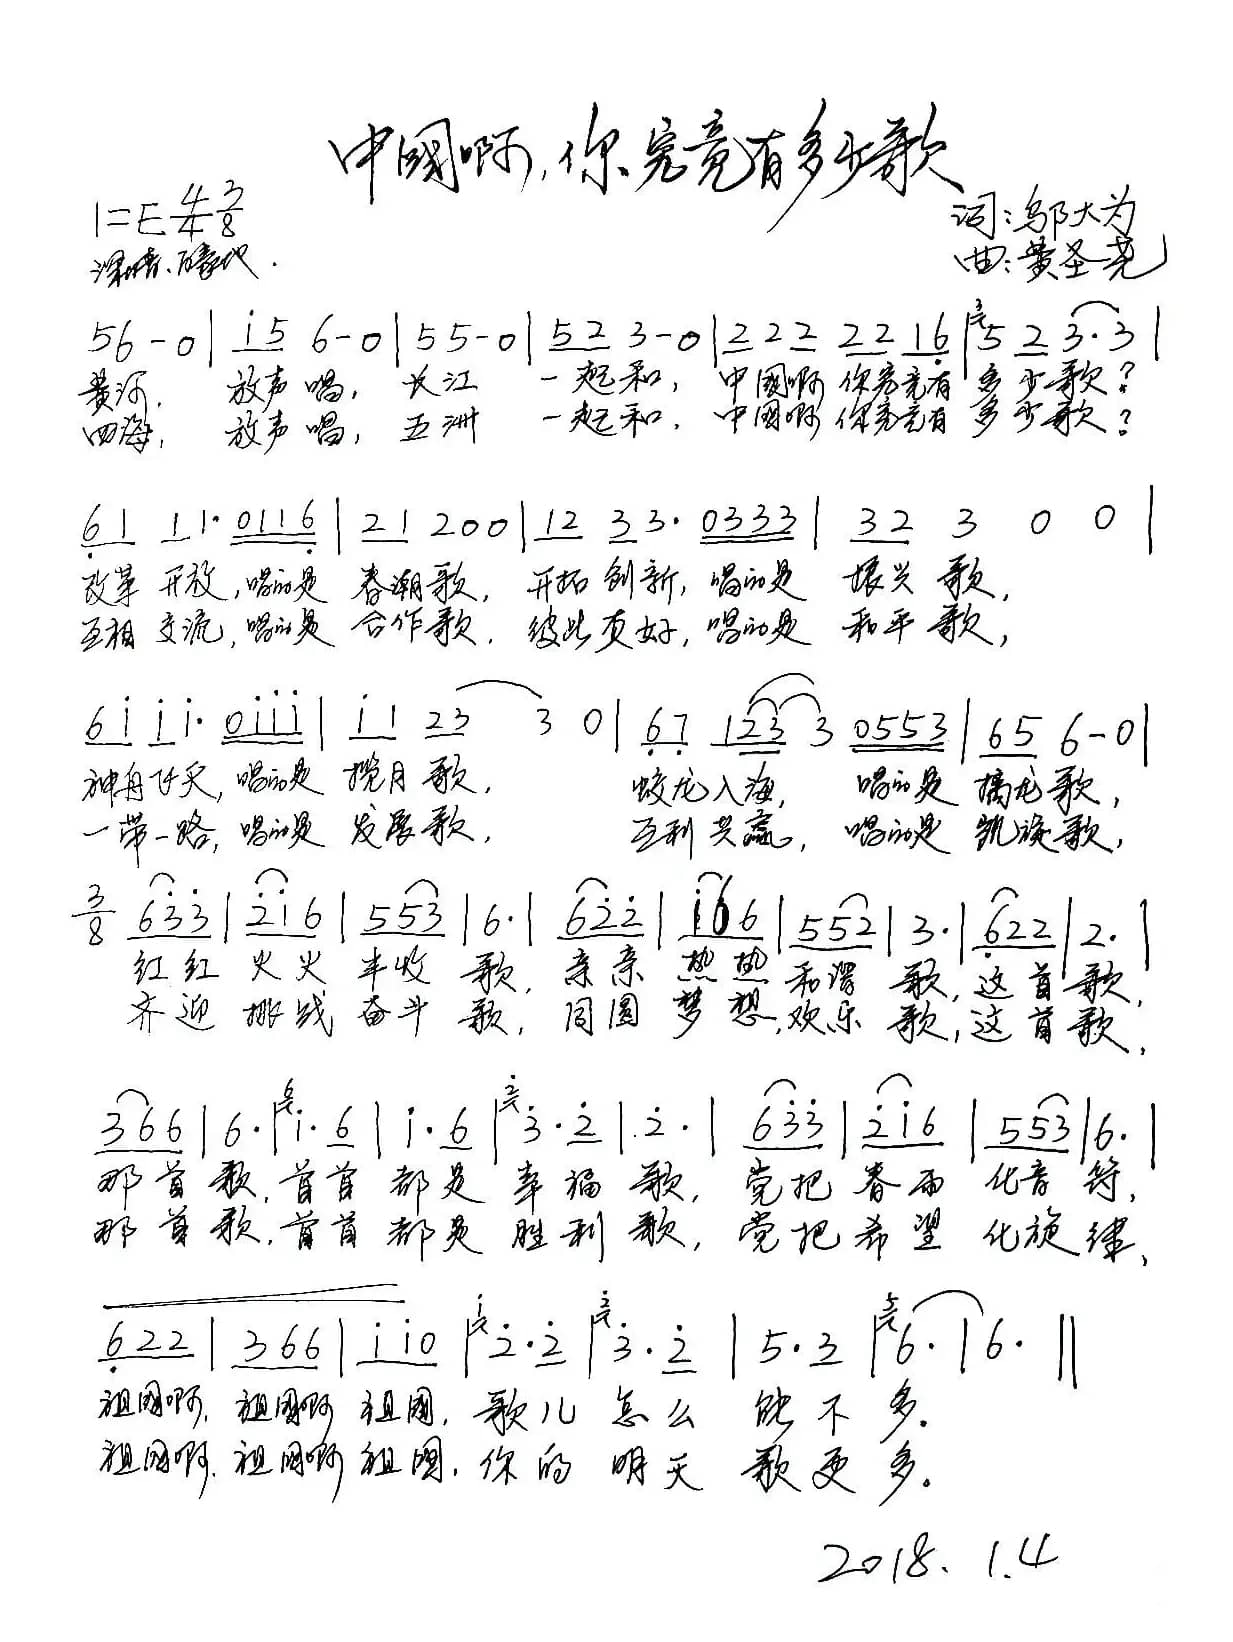 中國啊,你究竟有多少歌
1=E 4/4 3/8
词:邬大为
深情、豪迈地.
曲:黄圣尧
56-0| i5 6-0|55-0|52 3-0|222 22 16|5 2 3·3|
黄河. 放声唱, 长江 一起和, 中國啊 你究竟有 多少歌?
四海, 放声唱, 五洲 一起和. 中國啊 你究竟有 多少歌?
61 11· 0116|21 200|12 33· 0333|32 3 0 0|
改革开放,唱的是 春潮歌, 开拓创新,唱的是 振兴歌,
互相交流,唱的是 合作歌. 彼此友好,唱的是 和平歌,
6i ii· 0iii|i1 23 3 0|67 123 3 0553|65 6-0|
神舟飞天,唱的是 揽月歌, 蛟龙入海, 唱的是 擒龙歌,
一带一路,唱的是 发展歌, 互利共赢, 唱的是 凯旋歌,
3/8 633|2i6|553|6·|622|i66|552|3·|622|2·|
红红火火丰收歌,亲亲热热和谐歌,这首歌,
齐迎挑战奋斗歌,同圆梦想,欢乐歌,这首歌,
366|6·|i·6|i·6|3·2|2·|633|2i6|553|6·|
那首歌,首首都是幸福歌,党把春雨化音符,
那首歌,首首都是胜利歌,党把希望化旋律,
622|366|ii0|2·2|3·2|5·3|6·|6·||
祖国啊,祖国啊祖國,歌儿怎么能不多.
祖国啊.祖国啊祖國,你的明天歌更多.
2018.1.4